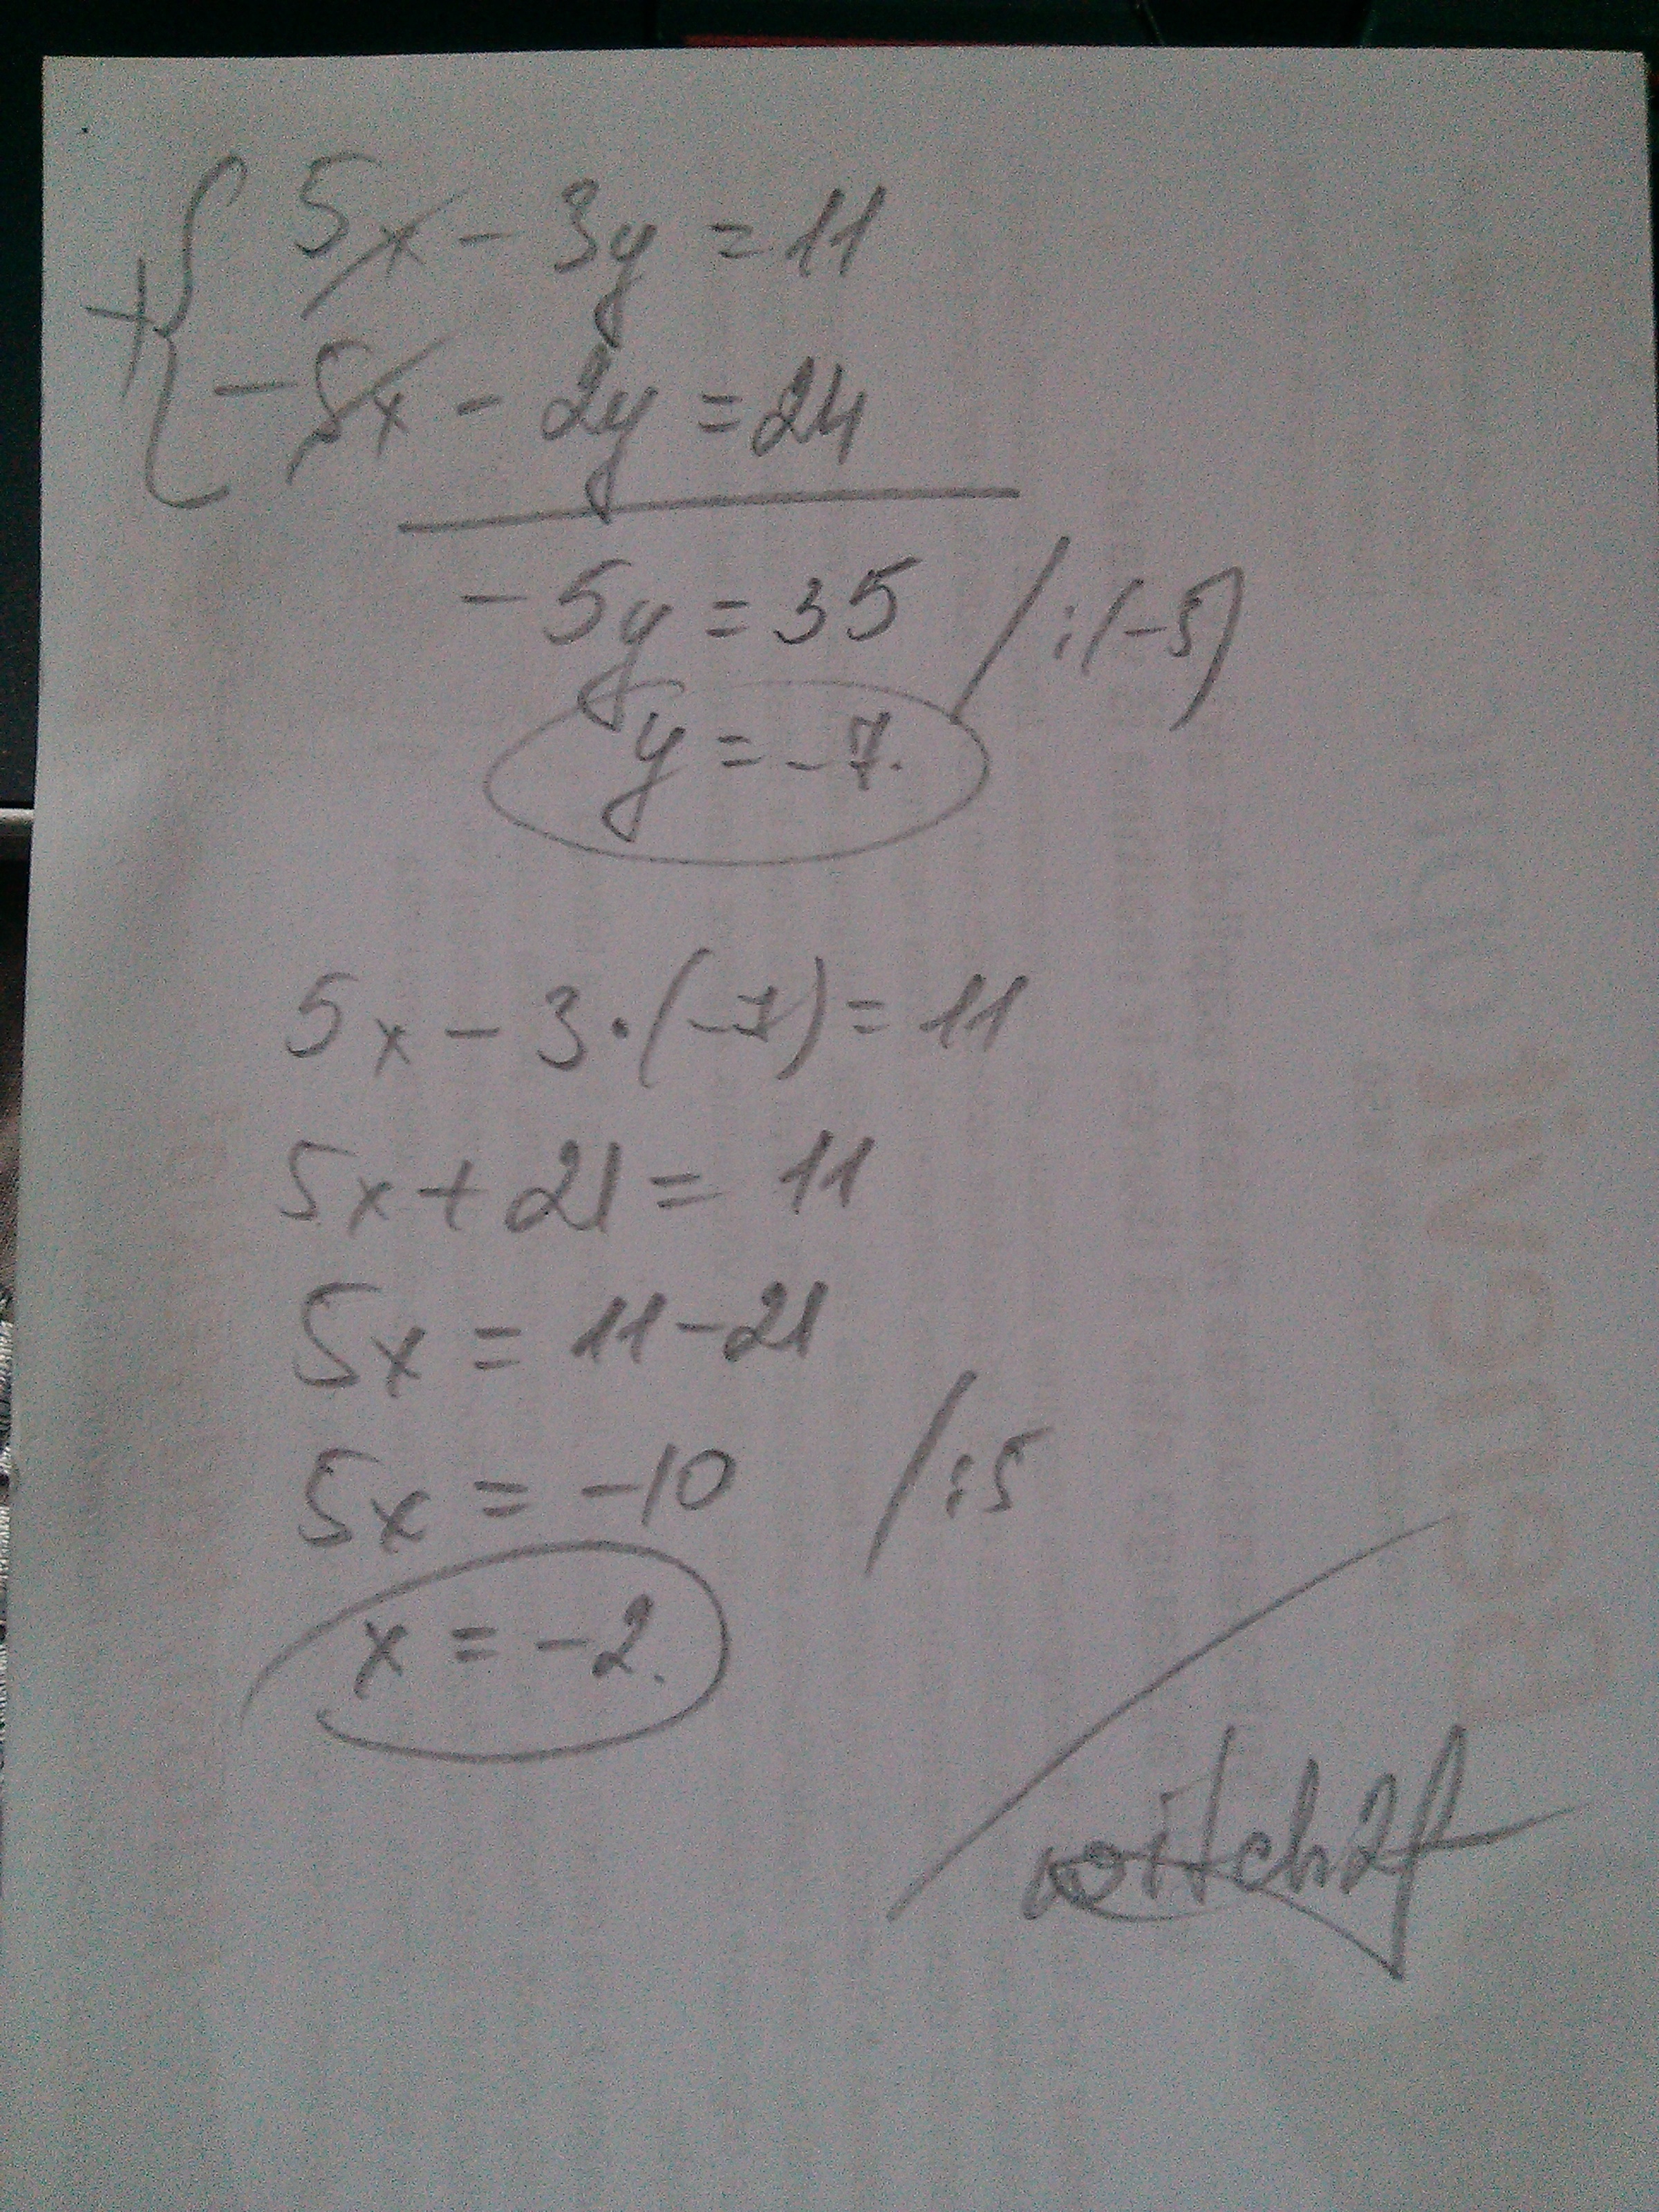 5x - 3y = 11
+{
-5x - 2y = 24
-5y = 35 /:(-5)
y = -7.
5x - 3·(-7) = 11
5x + 21 = 11
5x = 11-21
5x = -10 /:5
x = -2.